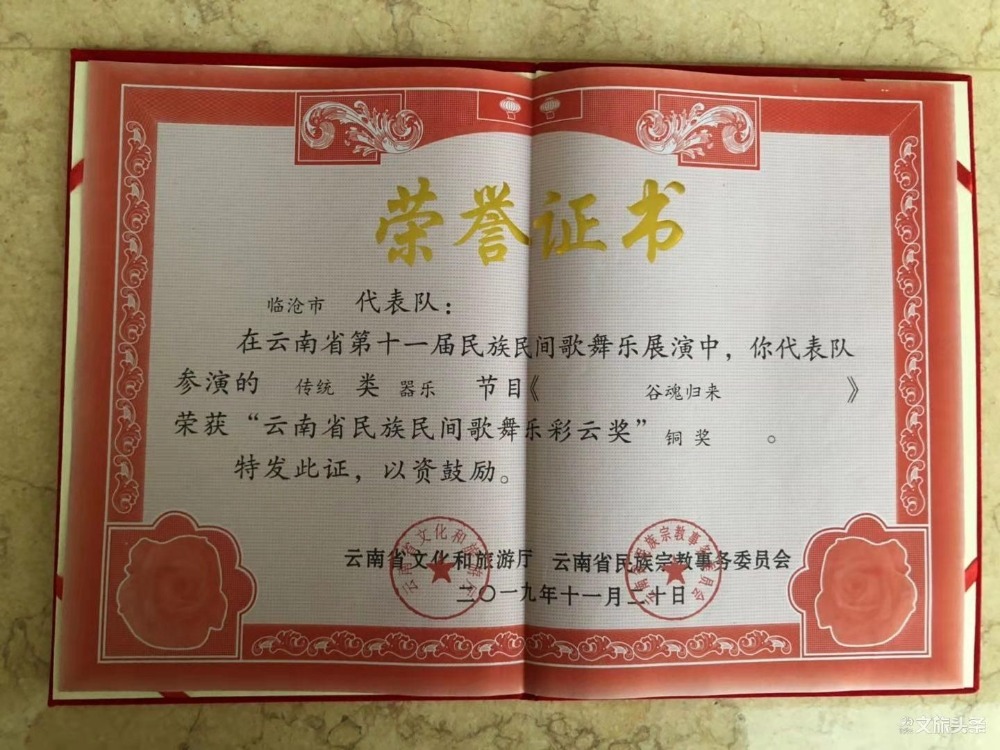 荣誉证书
临沧市 代表队：
在云南省第十一届民族民间歌舞乐展演中，你代表队
参演的 传统 类 器乐 节目《 谷魂归来 》
荣获“云南省民族民间歌舞乐彩云奖” 铜奖 。
特发此证，以资鼓励。
云南省文化和旅游厅 云南省民族宗教事务委员会
二〇一九年十一月二十日
云南省文化和旅游厅
云南省民族宗教事务委员会
文旅头条